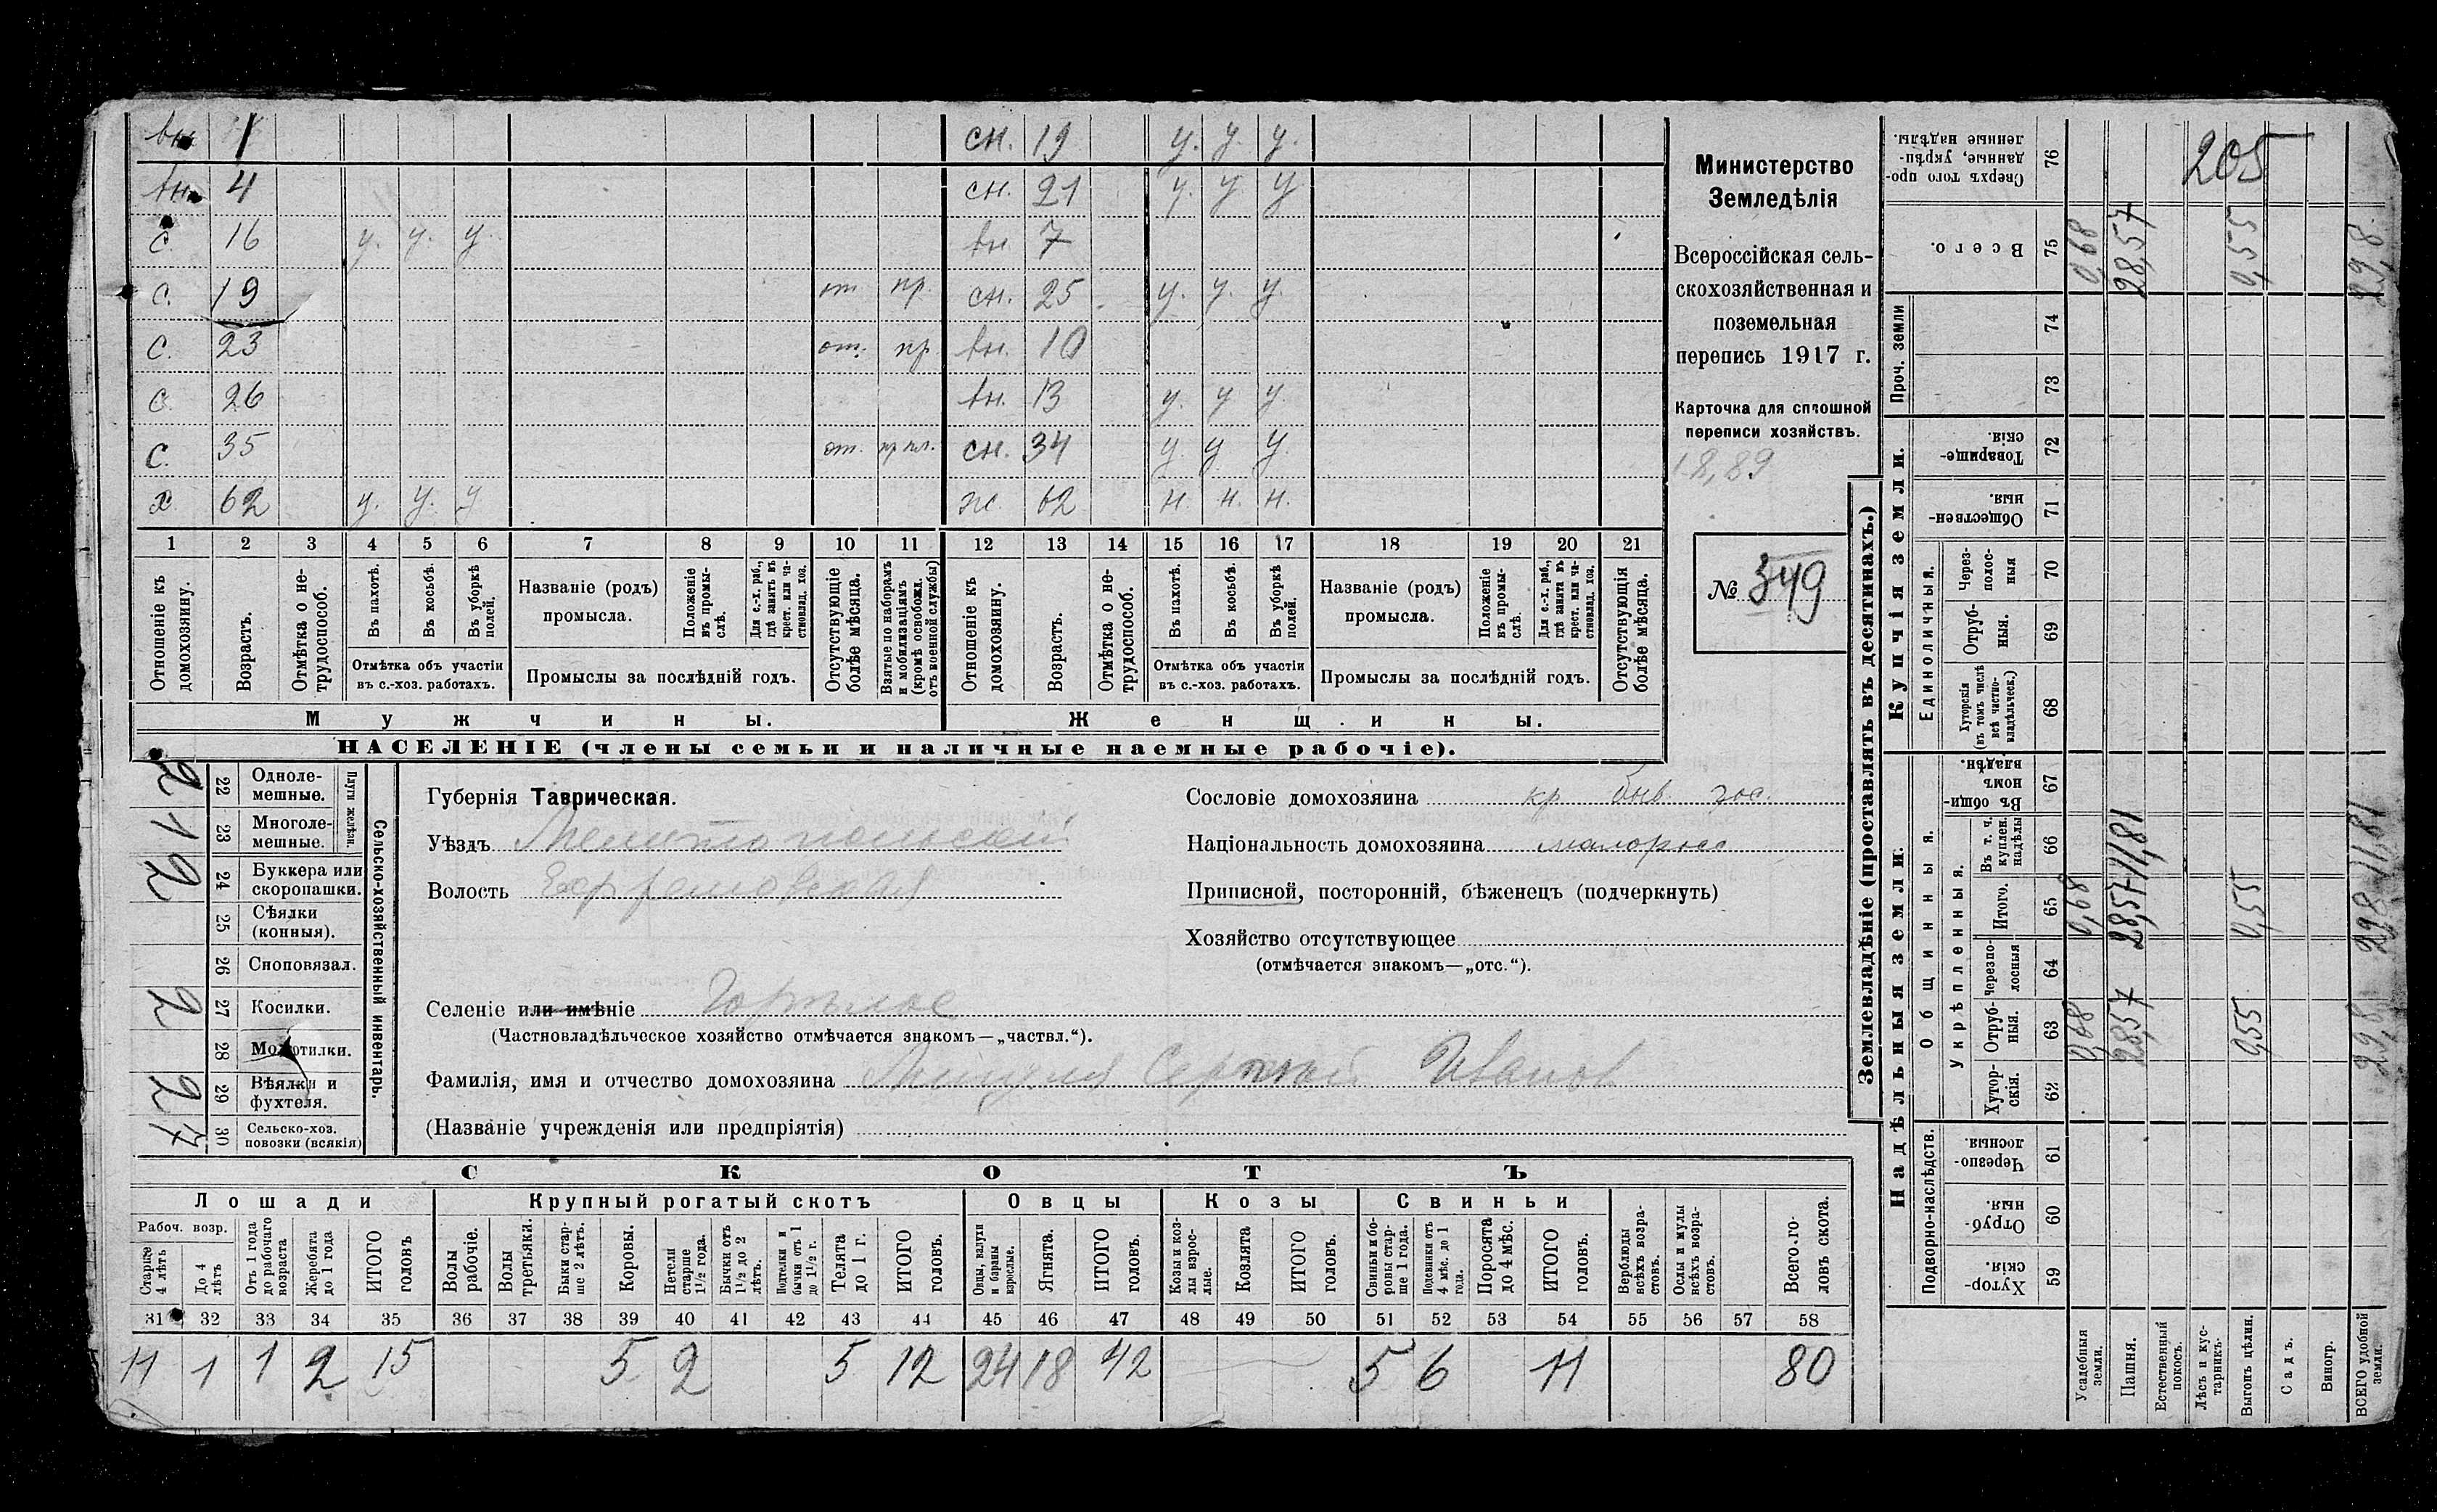 вн. 1 сн. 19 у. у. у.
вн. 4 сн. 21 у. у у
с. 16 у. у. у. вн. 7
с. 19 от пр. сн. 25 у. у. у.
с. 23 от. пр. вн. 10
с. 26 вн. 13 у. у у.
с. 35 от. сн. 34 у. у у.
х 62 у. у. у ж. 62 н. н. н.
1 2 3 4 5 6 7 8 9 10 11 12 13 14 15 16 17 18 19 20 21
Отношеніе къ домохозяину.
Возрастъ.
Отмѣтка о не-
трудоспособ.
Въ пахотѣ.
Въ косьбѣ.
Въ уборкѣ
полей.
Отмѣтка объ участіи
въ с.-хоз. работахъ.
Названіе (родъ)
промысла.
Положеніе
въ промы-
слѣ.
Для с.-х. раб.,
гдѣ занятъ въ
крест. или ча-
стновлад. хоз.
Промыслы за послѣдній годъ.
Отсутствующіе
болѣе мѣсяца.
Взятые по наборамъ
и мобилизаціямъ
(кромѣ освобожд.
отъ военной службы)
Отношеніе къ
домохозяину.
Возрастъ.
Отмѣтка о не-
трудоспособ.
Въ пахотѣ.
Въ косьбѣ.
Въ уборкѣ
полей.
Отмѣтка объ участіи
въ с.-хоз. работахъ.
Названіе (родъ)
промысла.
Положеніе
въ промы-
слѣ.
Для с.-х. раб.,
гдѣ занятъ въ
крест. или ча-
стновлад. хоз.
Промыслы за послѣдній годъ.
Отсутствующія
болѣе мѣсяца.
Мужчины. Женщины.
НАСЕЛЕНІЕ (члены семьи и наличные наемные рабочіе).
Министерство
Земледѣлія
Всероссійская сель-
скохозяйственная и
поземельная
перепись 1917 г.
Карточка для сплошной
переписи хозяйствъ.
18,89
№ 349
Сельско-хозяйственный инвентарь.
Плуги желѣзн.
2 22 Одноле-
мешные.
1 23 Многоле-
мешные.
2 24 Буккера или
скоропашки.
25 Сѣялки
(конныя).
26 Сноповязал.
2 27 Косилки.
28 Молотилки.
2 29 Вѣялки и
фухтеля.
7 30 Сельско-хоз.
повозки (всякія)
Губернія Таврическая.
Уѣздъ Мелитопольскій
Волость Ефремовская
Селеніе или имѣніе Горѣлое
(Частновладѣльческое хозяйство отмѣчается знакомъ—„частвл.“).
Фамилія, имя и отчество домохозяина Сергѣй Иванов
(Названіе учрежденія или предпріятія)
Сословіе домохозяина кр. быв. гос.
Національность домохозяина малоросс
Приписной, посторонній, бѣженецъ (подчеркнуть)
Хозяйство отсутствующее
(отмѣчается знакомъ—„отс.“).
СКОТЪ
Лошади Крупный рогатый скотъ Овцы Козы Свиньи
Рабоч. возр.
Старше
4 лѣтъ
До 4
лѣтъ
Отъ 1 года
до рабочаго
возраста
Жеребята
до 1 года
ИТОГО
головъ
Волы
рабочіе.
Волы
третьяки.
Быки стар-
ше 2 лѣтъ.
Коровы.
Нетели
старше
1½ года.
Бычки отъ
1½ до 2
лѣтъ.
Подтелки и
бычки отъ 1
до 1½ г.
Телята
до 1 г.
ИТОГО
головъ.
Овцы, валухи
и бараны
взрослые.
Ягнята.
ИТОГО
головъ.
Козы и коз-
лы взрос-
лые.
Козлята
ИТОГО
головъ.
Свиньи и бо-
ровы стар-
ше 1 года.
Подсвинки отъ
4 мѣс. до 1
года.
Поросята
до 4 мѣс.
ИТОГО
головъ.
Верблюды
всѣхъ возра-
стовъ.
Ослы и мулы
всѣхъ возра-
стовъ.
Всего го-
ловъ скота.
31 32 33 34 35 36 37 38 39 40 41 42 43 44 45 46 47 48 49 50 51 52 53 54 55 56 57 58
11 1 1 2 15 5 2 5 12 24 18 42 5 6 11 80
Землевладѣніе (проставлять въ десятинахъ.)
Надѣльныя земли. Купчія земли. Проч. земли
Подворно-наслѣдств. Общинныя. Укрѣпленныя. Единоличныя.
Хутор-
скія. 59
Отруб-
ныя. 60
Черезпо-
лосныя. 61
Хутор-
скія. 62
Отруб-
ныя. 63
Черезпо-
лосныя 64
Итого. 65
Въ т. ч.
куплен.
надѣлы 66
Въ общи-
номъ
владѣн. 67
Хуторскія
(въ томъ числѣ
всѣ частно-
владѣльческ.) 68
Отруб-
ныя. 69
Через-
полос-
ныя 70
Обществен-
ныя. 71
Товарище-
скія. 72
73
74
Всего. 75
Сверхъ того про-
данные, укрѣп-
ленные надѣлы. 76
205
Усадебныя
земли. 0,68 0,68 0,68
Пашня. 28,57 28,57 11,81 28,57
Естественный
покосъ.
Лѣсъ и кус-
тарникъ.
Выгонъ цѣлин. 0,55 0,55 0,55
Садъ.
Виногр.
ВСЕГО удобной
земли. 29,8 29,8 11,81 29,8